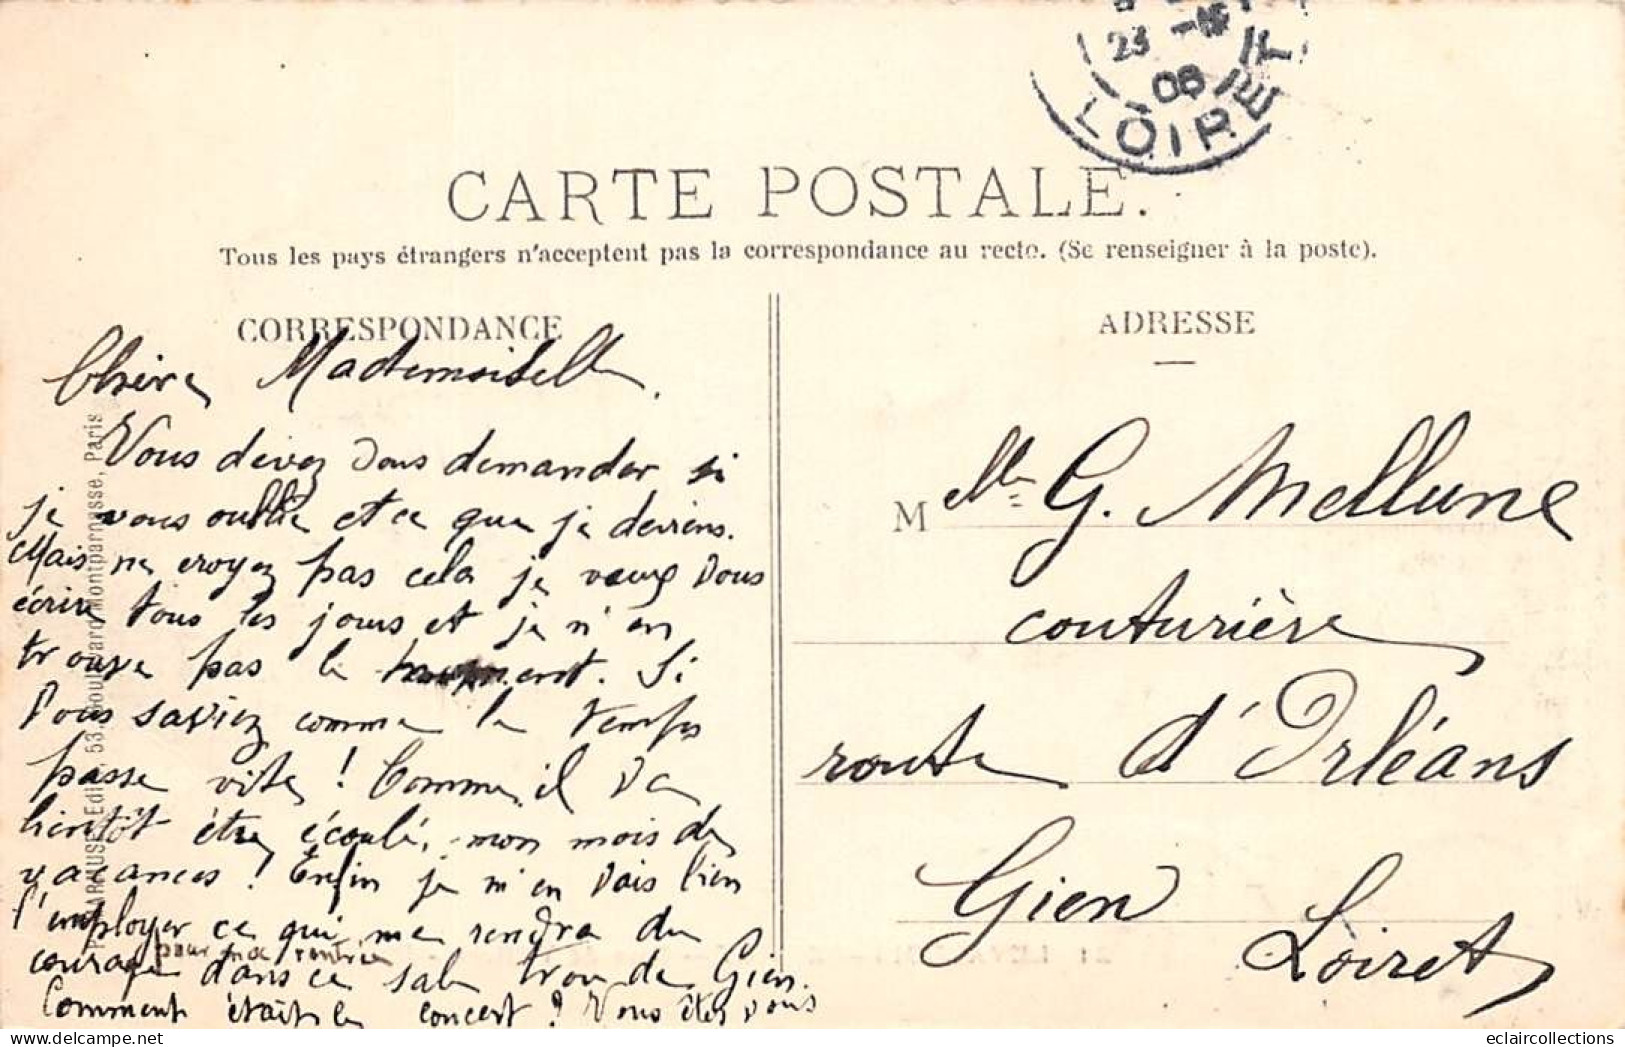 23 -5
08
LOIRET
CARTE POSTALE.
Tous les pays étrangers n'acceptent pas la correspondance au recto. (Se renseigner à la poste).
CORRESPONDANCE
Chère Mademoiselle.
Vous devez vous demander si
je vous oublie et ce que je deviens.
Mais ne croyez pas cela je veux vous
écrire tous les jours et je n'en
trouve pas le moment. Si
vous saviez comme le temps
passe vite ! Comme il va
bientôt être écoulé, mon mois de
vacances ! Enfin je m'en vais bien
l'employer ce qui me rendra du
courage pour ma rentrée dans ce sale trou de Gien.
Comment était le concert ? Vous êtes vous
ADRESSE
M elle G. Mellune
couturière
route d'Orléans
Gien
Loiret
Edit. 53, Boulevard Montparnasse, Paris
eclaircollections